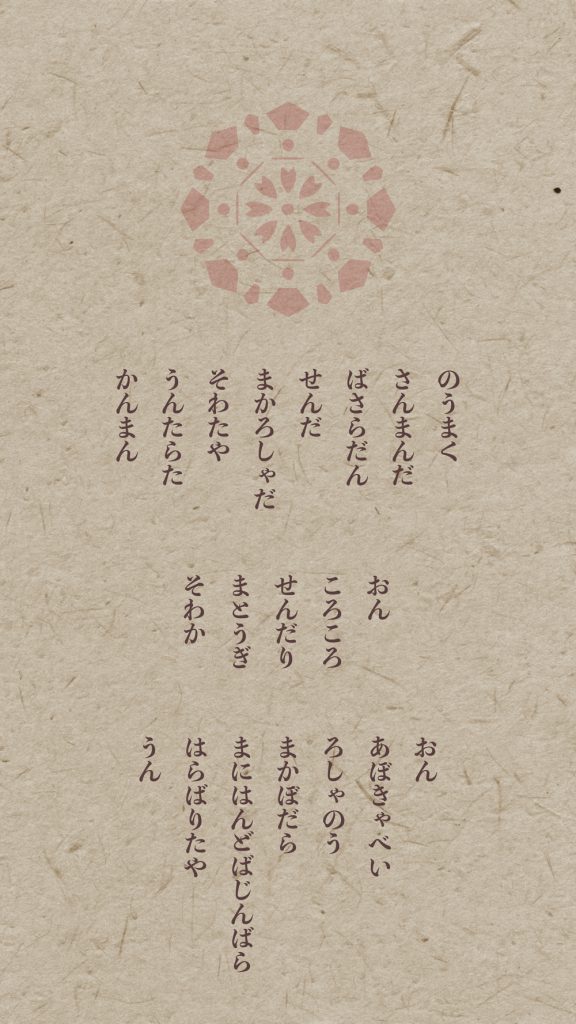 のうまく
さんまんだ
ばさらだん
せんだ
まかろしゃだ
そわたや
うんたらた
かんまん
おん
ころころ
せんだり
まとうぎ
そわか
おん
あぼきゃべい
ろしゃのう
まかぼだら
まにはんどばじんばら
はらばりたや
うん